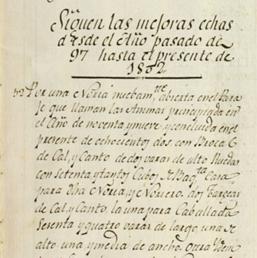 Siguen las mejoras echas
desde el Año pasado de
97 hasta el presente de
1802
Por una Noria nuebam.te abierta en el Para
Je que llaman las Animas principiada en
el Año de noventa y nueve, y concluida en el
presente de ochocientos dos con Broca
de Cal, y Canto de dos varas de alto
con Setenta y tantos Cubos Cara
para Dha Noria y Noriero, dos
de Cal, y Canto, la una para Caballada
Setenta y quatro varas de largo una de
alto una y media de ancho, Otra Ydem